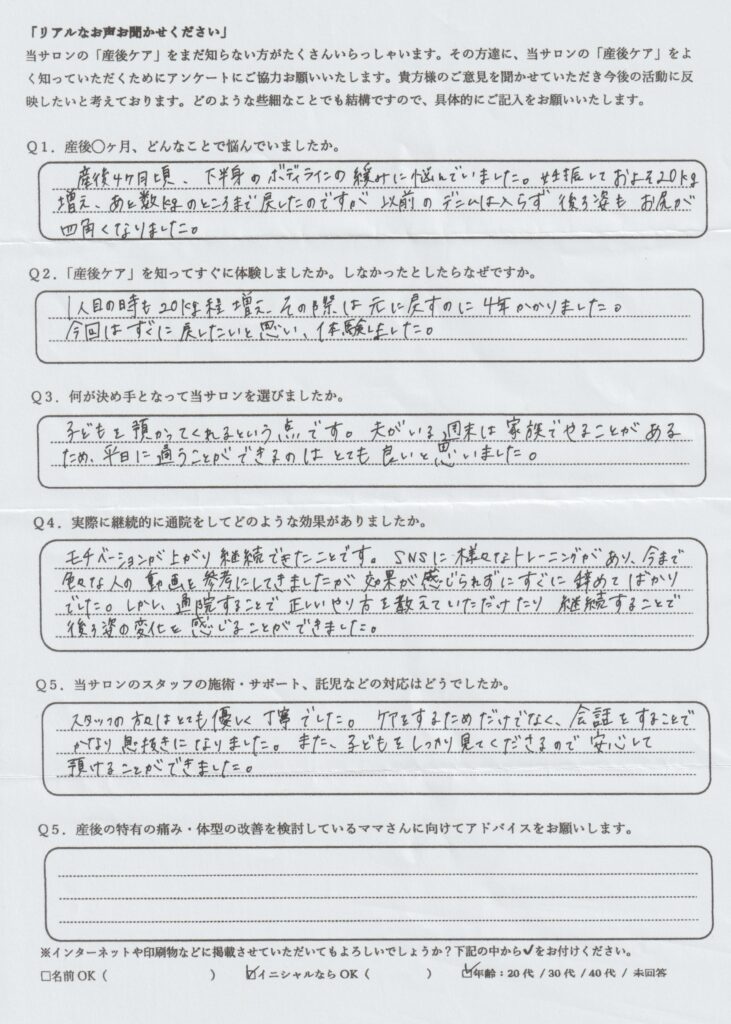 「リアルなお声お聞かせください」
当サロンの「産後ケア」をまだ知らない方がたくさんいらっしゃいます。その方達に、当サロンの「産後ケア」をよ
く知っていただくためにアンケートにご協力お願いいたします。貴方様のご意見を聞かせていただき今後の活動に反
映したいと考えております。どのような些細なことでも結構ですので、具体的にご記入をお願いいたします。
Q1．産後〇ヶ月、どんなことで悩んでいましたか。
産後4ヶ月頃、下半身のボディラインの緩みに悩んでいました。妊娠しておよそ20kg
増え、あと数kgのところまで戻したのですが以前のデニムは入らず後ろ姿もお尻が
四角くなりました。
Q2．「産後ケア」を知ってすぐに体験しましたか。しなかったとしたらなぜですか。
1人目の時も20kg程増え、その際は元に戻すのに4年かかりました。
今回はすぐに戻したいと思い、体験しました。
Q3．何が決め手となって当サロンを選びましたか。
子どもを預かってくれるという点です。夫がいる週末は家族でやることがある
ため、平日に通うことができるのはとても良いと思いました。
Q4．実際に継続的に通院をしてどのような効果がありましたか。
モチベーションが上がり継続できたことです。SNSに様々なトレーニングがあり、今まで
色々な人の動画を参考にしてきましたが効果が感じられずにすぐに辞めてばかり
でした。しかし、通院することで正しいやり方を教えていただけたり継続することで
後ろ姿の変化を感じることができました。
Q5．当サロンのスタッフの施術・サポート、託児などの対応はどうでしたか。
スタッフの方々はとても優しく丁寧でした。ケアをするためだけでなく、会話をすることで
かなり息抜きになりました。また、子どもをしっかり見てくださるので安心して
預けることができました。
Q5．産後の特有の痛み・体型の改善を検討しているママさんに向けてアドバイスをお願いします。
※インターネットや印刷物などに掲載させていただいてもよろしいでしょうか？下記の中から✓をお付けください。
□名前OK（　　　　　　　） ☑イニシャルならOK（　　　　） ☑年齢：20代 / 30代 / 40代 / 未回答